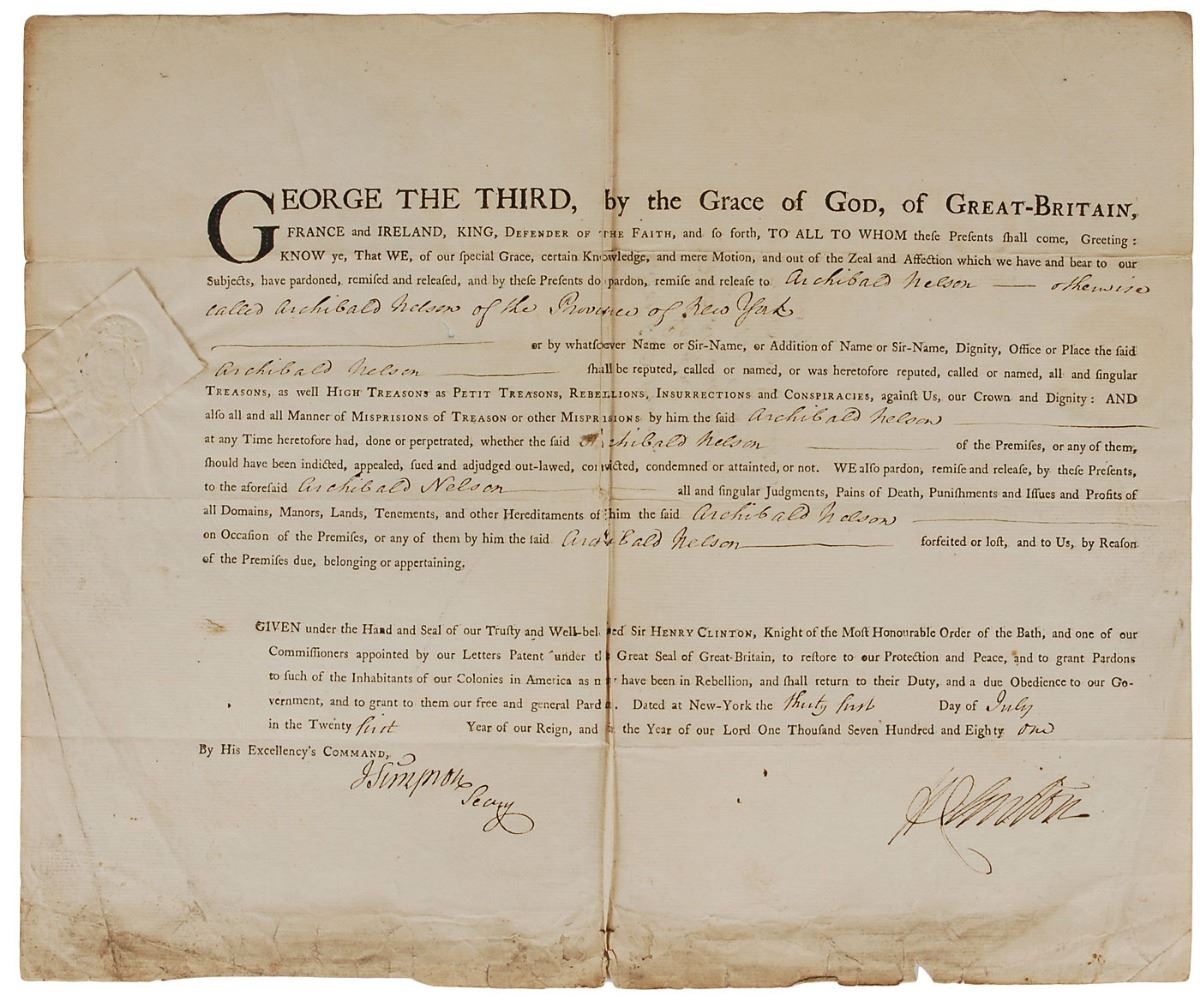 GEORGE THE THIRD, by the Grace of GOD, of GREAT-BRITAIN,
FRANCE and IRELAND, KING, DEFENDER OF THE FAITH, and ſo forth, TO ALL TO WHOM theſe Preſents ſhall come, Greeting:
KNOW ye, That WE, of our ſpecial Grace, certain Knowledge, and mere Motion, and out of the Zeal and Affection which we have and bear to our
Subjects, have pardoned, remiſed and releaſed, and by theſe Preſents do pardon, remiſe and releaſe to Archibald Nelson — otherwise
called Archibald Nelson of the Province of New York
or by whatſoever Name or Sir-Name, or Addition of Name or Sir-Name, Dignity, Office or Place the ſaid
Archibald Nelson ſhall be reputed, called or named, or was heretofore reputed, called or named, all and ſingular
TREASONS, as well HIGH TREASONS as PETIT TREASONS, REBELLIONS, INSURRECTIONS and CONSPIRACIES, againſt Us, our Crown and Dignity: AND
alſo all and all Manner of MISPRISIONS OF TREASON or other MISPRISIONS by him the ſaid Archibald Nelson
at any Time heretofore had, done or perpetrated, whether the ſaid Archibald Nelson of the Premiſes, or any of them,
ſhould have been indicted, appealed, ſued and adjudged out-lawed, convicted, condemned or attainted, or not. WE alſo pardon, remiſe and releaſe, by theſe Preſents,
to the aforeſaid Archibald Nelson all and ſingular Judgments, Pains of Death, Puniſhments and Iſſues and Profits of
all Domains, Manors, Lands, Tenements, and other Hereditaments of him the ſaid Archibald Nelson
on Occaſion of the Premiſes, or any of them by him the ſaid Archibald Nelson forfeited or loſt, and to Us, by Reaſon
of the Premiſes due, belonging or appertaining.
GIVEN under the Hand and Seal of our Truſty and Well-beloved Sir HENRY CLINTON, Knight of the Moſt Honourable Order of the Bath, and one of our
Commiſſioners appointed by our Letters Patent under the Great Seal of Great-Britain, to reſtore to our Protection and Peace, and to grant Pardons
to ſuch of the Inhabitants of our Colonies in America as may have been in Rebellion, and ſhall return to their Duty, and a due Obedience to our Go-
vernment, and to grant to them our free and general Pardon. Dated at New-York the thirty first Day of July
in the Twenty first Year of our Reign, and in the Year of our Lord One Thouſand Seven Hundred and Eighty one
By His Excellency's COMMAND,
J Simpson
Secry
H Clinton